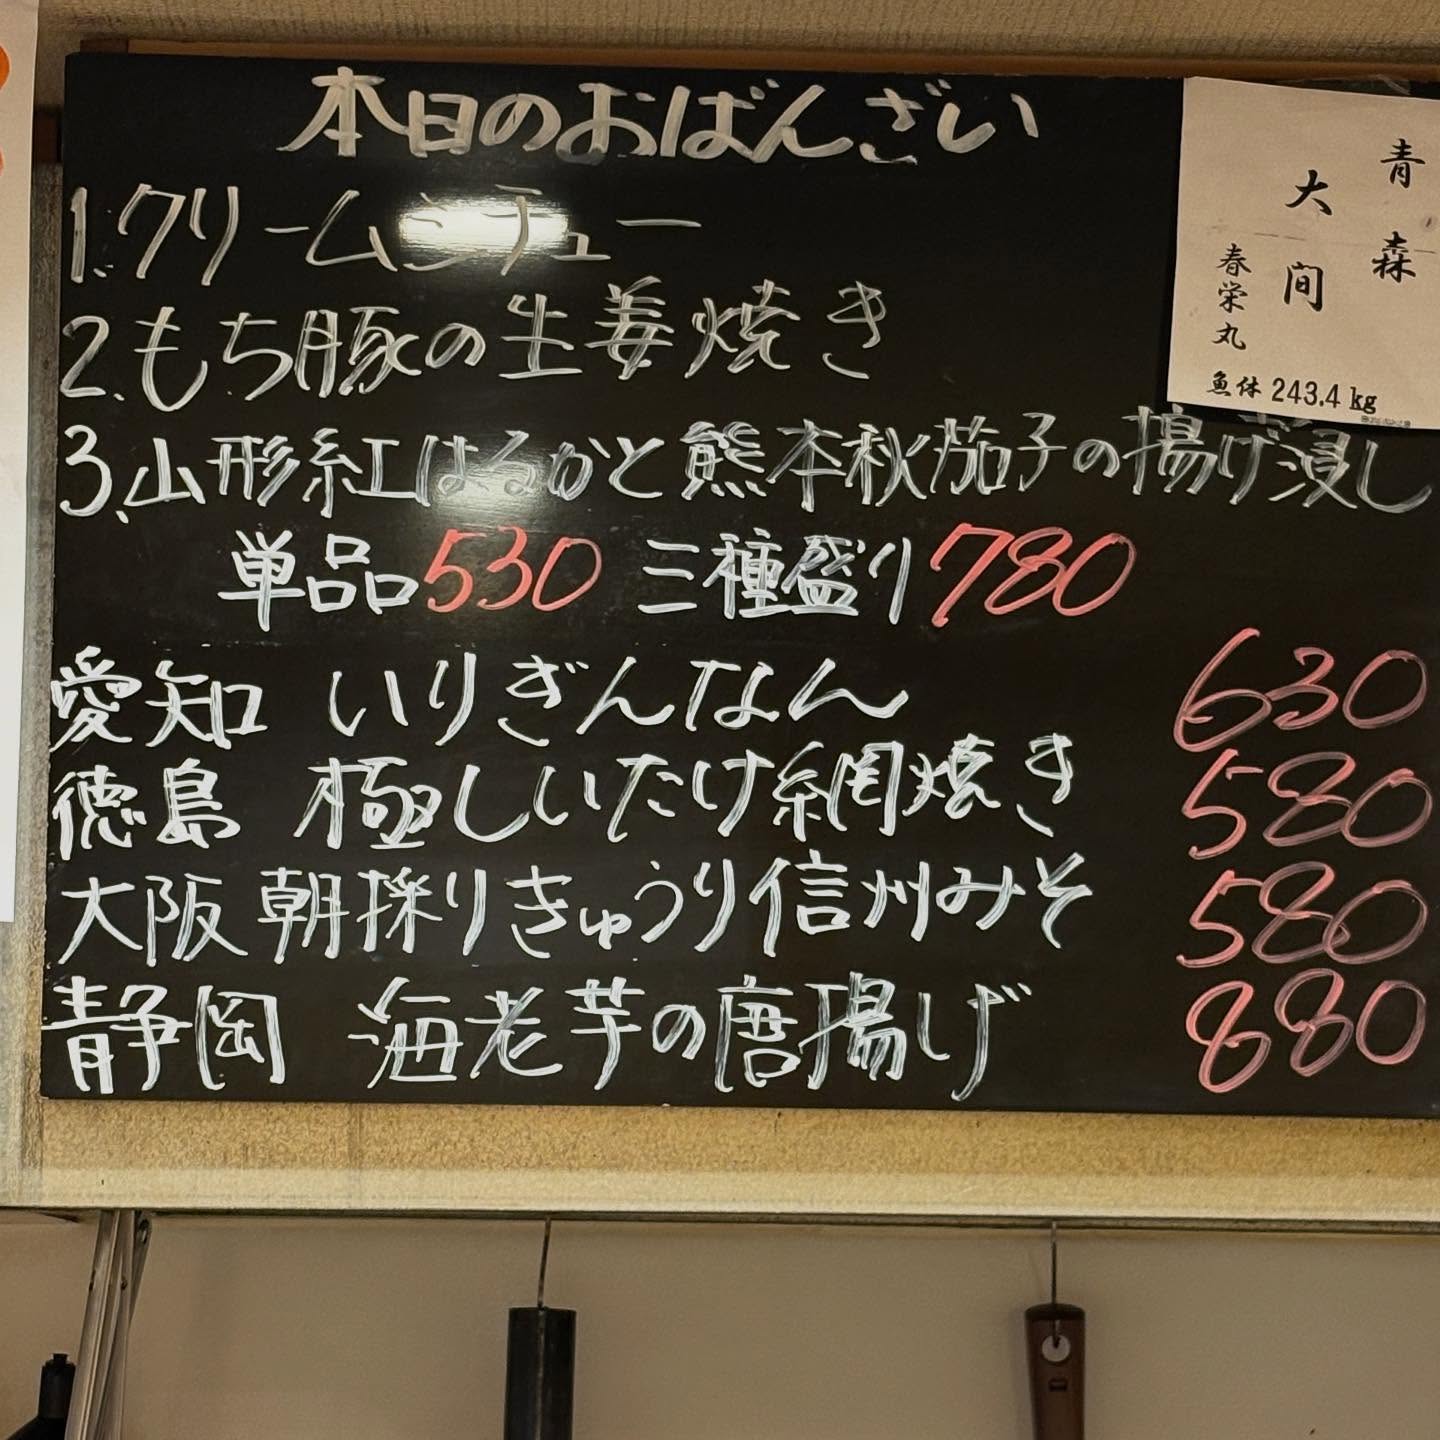 本日のおばんざい
1.クリームシチュー
2.もち豚の生姜焼き
3.山形紅はるかと熊本秋茄子の揚げ浸し
単品530 三種盛り780
愛知 いりぎんなん 630
徳島 極しいたけ網焼き 580
大阪 朝採りきゅうり信州みそ 580
静岡 海老芋の唐揚げ 880
青森
大間
春栄丸
魚体 243.4 kg